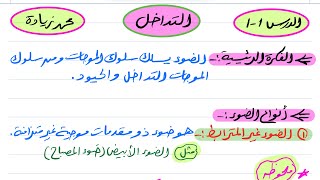 الدرس ١-١
التداخل
محمد زيادة
الفكرة الرئيسية:- الضوء يسلك سلوك الموجات ومن سلوك
الموجات التداخل والحيود.
أنواع الضوء:-
① الضوء غير المترابط:- هو ضوء ذو مقدمات موجية غير متزامنة.
مثل الضوء الأبيض (ضوء المصباح)
ملحوظة